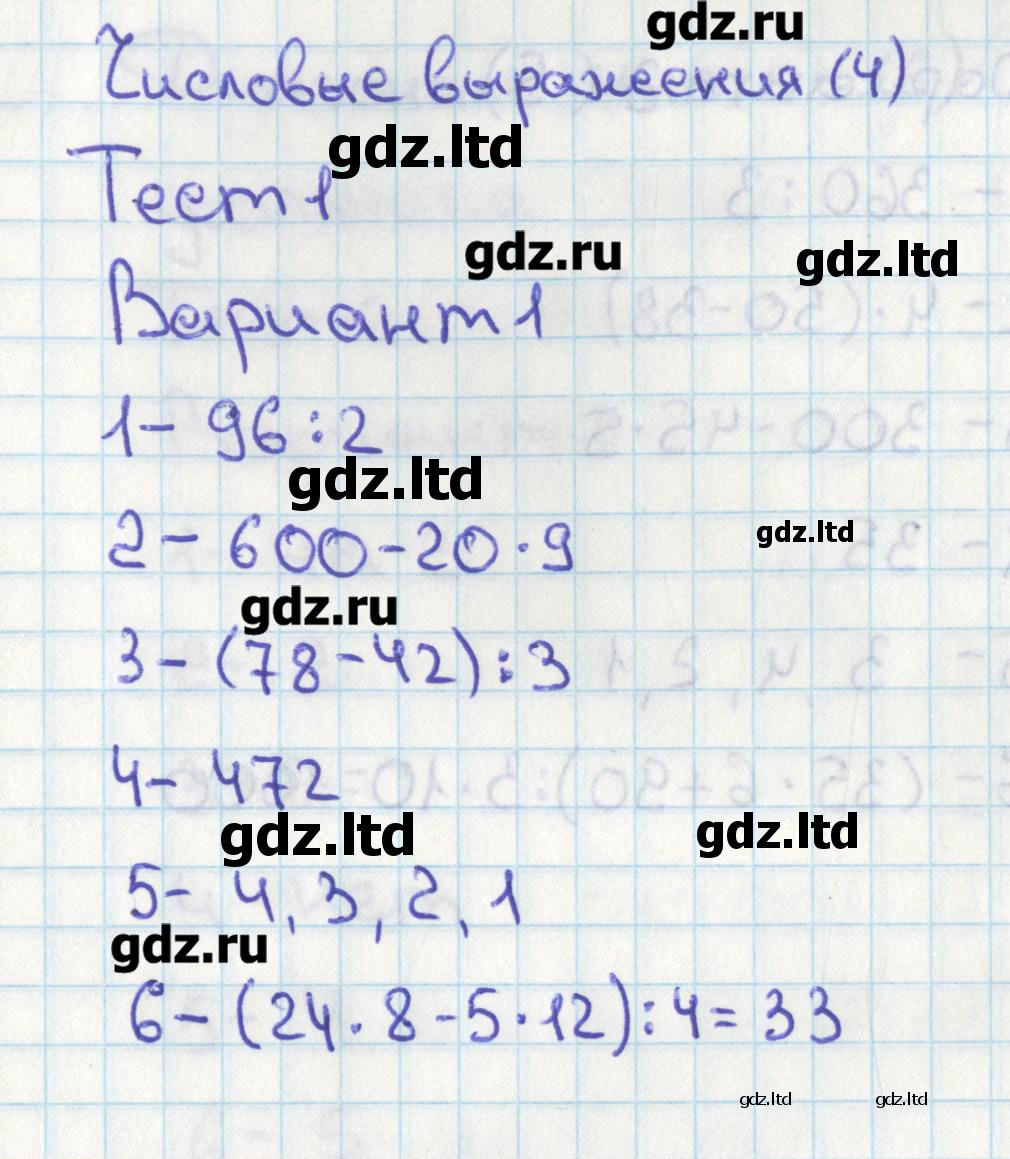 gdz.ru
Числовые выражения (4)
gdz.ltd
Тест 1
gdz.ru gdz.ltd
Вариант 1
1 - 96 : 2
gdz.ltd
2 - 600 - 20 · 9
gdz.ltd
gdz.ru
3 - (78 - 42) : 3
4 - 472
gdz.ltd gdz.ltd
5 - 4, 3, 2, 1
gdz.ru
6 - (24 · 8 - 5 · 12) : 4 = 33
gdz.ltd gdz.ltd